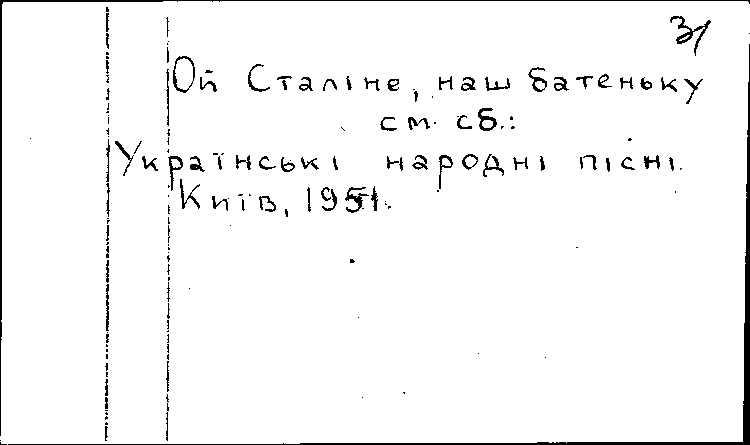 31
Ой Сталіне, наш батеньку
см. сб.:
Українські народні пісні.
Київ, 1951.